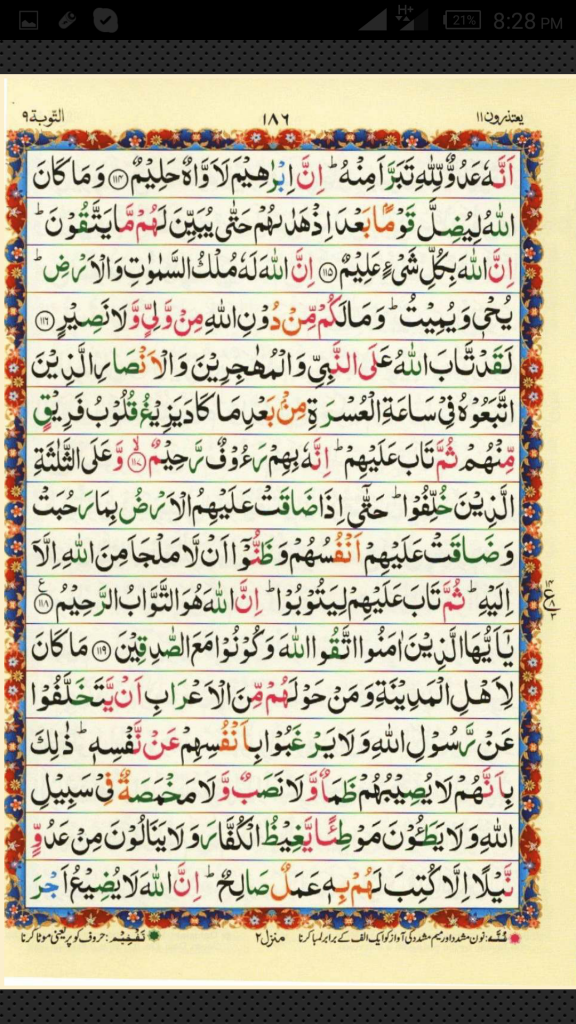 H+ 21% 8:28 PM
يعتذرون ١١ ١٨٦ التوبة ٩
اَنَّهٗ عَدُوٌّ لِّلّٰهِ تَبَرَّاَ مِنْهُ ؕ اِنَّ اِبْرٰهِيْمَ لَاَوَّاهٌ حَلِيْمٌ ﴿۱۱۴﴾ وَمَا كَانَ
اللّٰهُ لِيُضِلَّ قَوْمًۢا بَعْدَ اِذْ هَدٰىهُمْ حَتّٰى يُبَيِّنَ لَهُمْ مَّا يَتَّقُوْنَ ؕ
اِنَّ اللّٰهَ بِكُلِّ شَىْءٍ عَلِيْمٌ ﴿۱۱۵﴾ اِنَّ اللّٰهَ لَهٗ مُلْكُ السَّمٰوٰتِ وَالْاَرْضِ ؕ
يُحْىٖ وَيُمِيْتُ ؕ وَمَا لَكُمْ مِّنْ دُوْنِ اللّٰهِ مِنْ وَّلِىٍّ وَّلَا نَصِيْرٍ ﴿۱۱۶﴾
لَقَدْ تَّابَ اللّٰهُ عَلَى النَّبِىِّ وَالْمُهٰجِرِيْنَ وَالْاَنْصَارِ الَّذِيْنَ
اتَّبَعُوْهُ فِىْ سَاعَةِ الْعُسْرَةِ مِنْۢ بَعْدِ مَا كَادَ يَزِيْغُ قُلُوْبُ فَرِيْقٍ
مِّنْهُمْ ثُمَّ تَابَ عَلَيْهِمْ ؕ اِنَّهٗ بِهِمْ رَءُوْفٌ رَّحِيْمٌ ﴿۱۱۷﴾ ۙ وَّعَلَى الثَّلٰثَةِ
الَّذِيْنَ خُلِّفُوْا ؕ حَتّٰۤى اِذَا ضَاقَتْ عَلَيْهِمُ الْاَرْضُ بِمَا رَحُبَتْ
وَضَاقَتْ عَلَيْهِمْ اَنْفُسُهُمْ وَظَنُّوْۤا اَنْ لَّا مَلْجَاَ مِنَ اللّٰهِ اِلَّاۤ
اِلَيْهِ ؕ ثُمَّ تَابَ عَلَيْهِمْ لِيَتُوْبُوْا ؕ اِنَّ اللّٰهَ هُوَ التَّوَّابُ الرَّحِيْمُ ﴿۱۱۸﴾ ع
يٰۤاَيُّهَا الَّذِيْنَ اٰمَنُوا اتَّقُوا اللّٰهَ وَكُوْنُوْا مَعَ الصّٰدِقِيْنَ ﴿۱۱۹﴾ مَا كَانَ
لِاَهْلِ الْمَدِيْنَةِ وَمَنْ حَوْلَهُمْ مِّنَ الْاَعْرَابِ اَنْ يَّتَخَلَّفُوْا
عَنْ رَّسُوْلِ اللّٰهِ وَلَا يَرْغَبُوْا بِاَنْفُسِهِمْ عَنْ نَّفْسِهٖ ؕ ذٰلِكَ
بِاَنَّهُمْ لَا يُصِيْبُهُمْ ظَمَاٌ وَّلَا نَصَبٌ وَّلَا مَخْمَصَةٌ فِىْ سَبِيْلِ
اللّٰهِ وَلَا يَطَـُٔوْنَ مَوْطِئًا يَّغِيْظُ الْكُفَّارَ وَلَا يَنَالُوْنَ مِنْ عَدُوٍّ
نَّيْلًا اِلَّا كُتِبَ لَهُمْ بِهٖ عَمَلٌ صَالِحٌ ؕ اِنَّ اللّٰهَ لَا يُضِيْعُ اَجْرَ
غُنَّه: نون مشدد اور میم مشدد کی آواز کو ایک الف کے برابر لمبا کرنا منزل ٢ تَفْخِيْم: حروف کو پُر یعنی موٹا کرنا